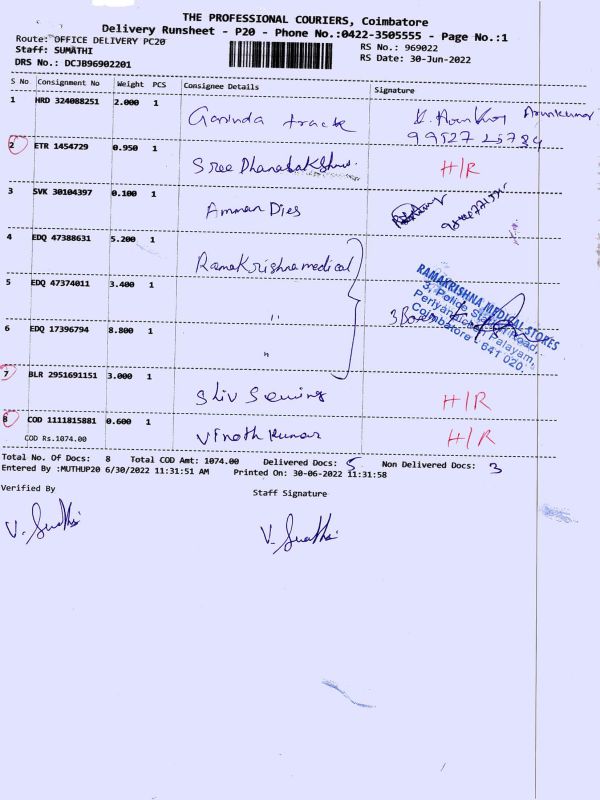 THE PROFESSIONAL COURIERS, Coimbatore
Delivery Runsheet - P20 - Phone No.:0422-3505555 - Page No.:1
Route: OFFICE DELIVERY PC20
RS No.: 969022
Staff: SUMATHI
RS Date: 30-Jun-2022
DRS No.: DCJB96902201
S No Consignment No Weight PCS Consignee Details Signature
1 HRD 324088251 2.000 1 Govinda track Arunkumar
99527 25734
2 ETR 1454729 0.950 1 Sree H/R
3 SVK 30104397 0.100 1 Amman Dies
4 EDQ 47388631 5.200 1 Ramakrishna medical
5 EDQ 47374011 3.400 1 "
6 EDQ 17396794 8.800 1 "
RAMAKRISHNA MEDICAL STORES
3, Police Station Road,
Periyanaicken Palayam,
Coimbatore - 641 020.
3 Box
7 BLR 2951691151 3.000 1 Shiv Sewing H/R
8 COD 1111815881 0.600 1 Vinoth kumar H/R
COD Rs.1074.00
Total No. Of Docs: 8 Total COD Amt: 1074.00 Delivered Docs: 5 Non Delivered Docs: 3
Entered By :MUTHUP20 6/30/2022 11:31:51 AM Printed On: 30-06-2022 11:31:58
Verified By
Staff Signature